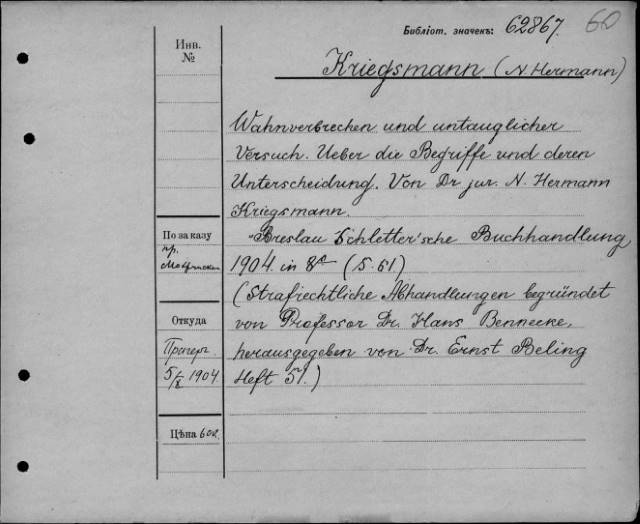 Библіот. значекъ: 62867. 60
Инв.
№
Kriegsmann (N. Hermann)
Wahnverbrechen und untauglicher
Versuch. Ueber die Begriffe und deren
Unterscheidung. Von Dr jur. N. Hermann
Kriegsmann.
По заказу
пр.
Breslau Schletter'sche Buchhandlung
1904. in 8° (S. 61)
(Strafrechtliche Abhandlungen begründet
von Professor Dr. Hans Bennecke,
herausgegeben von Dr. Ernst Beling
Heft 51.)
Откуда
5/X 1904
Цѣна